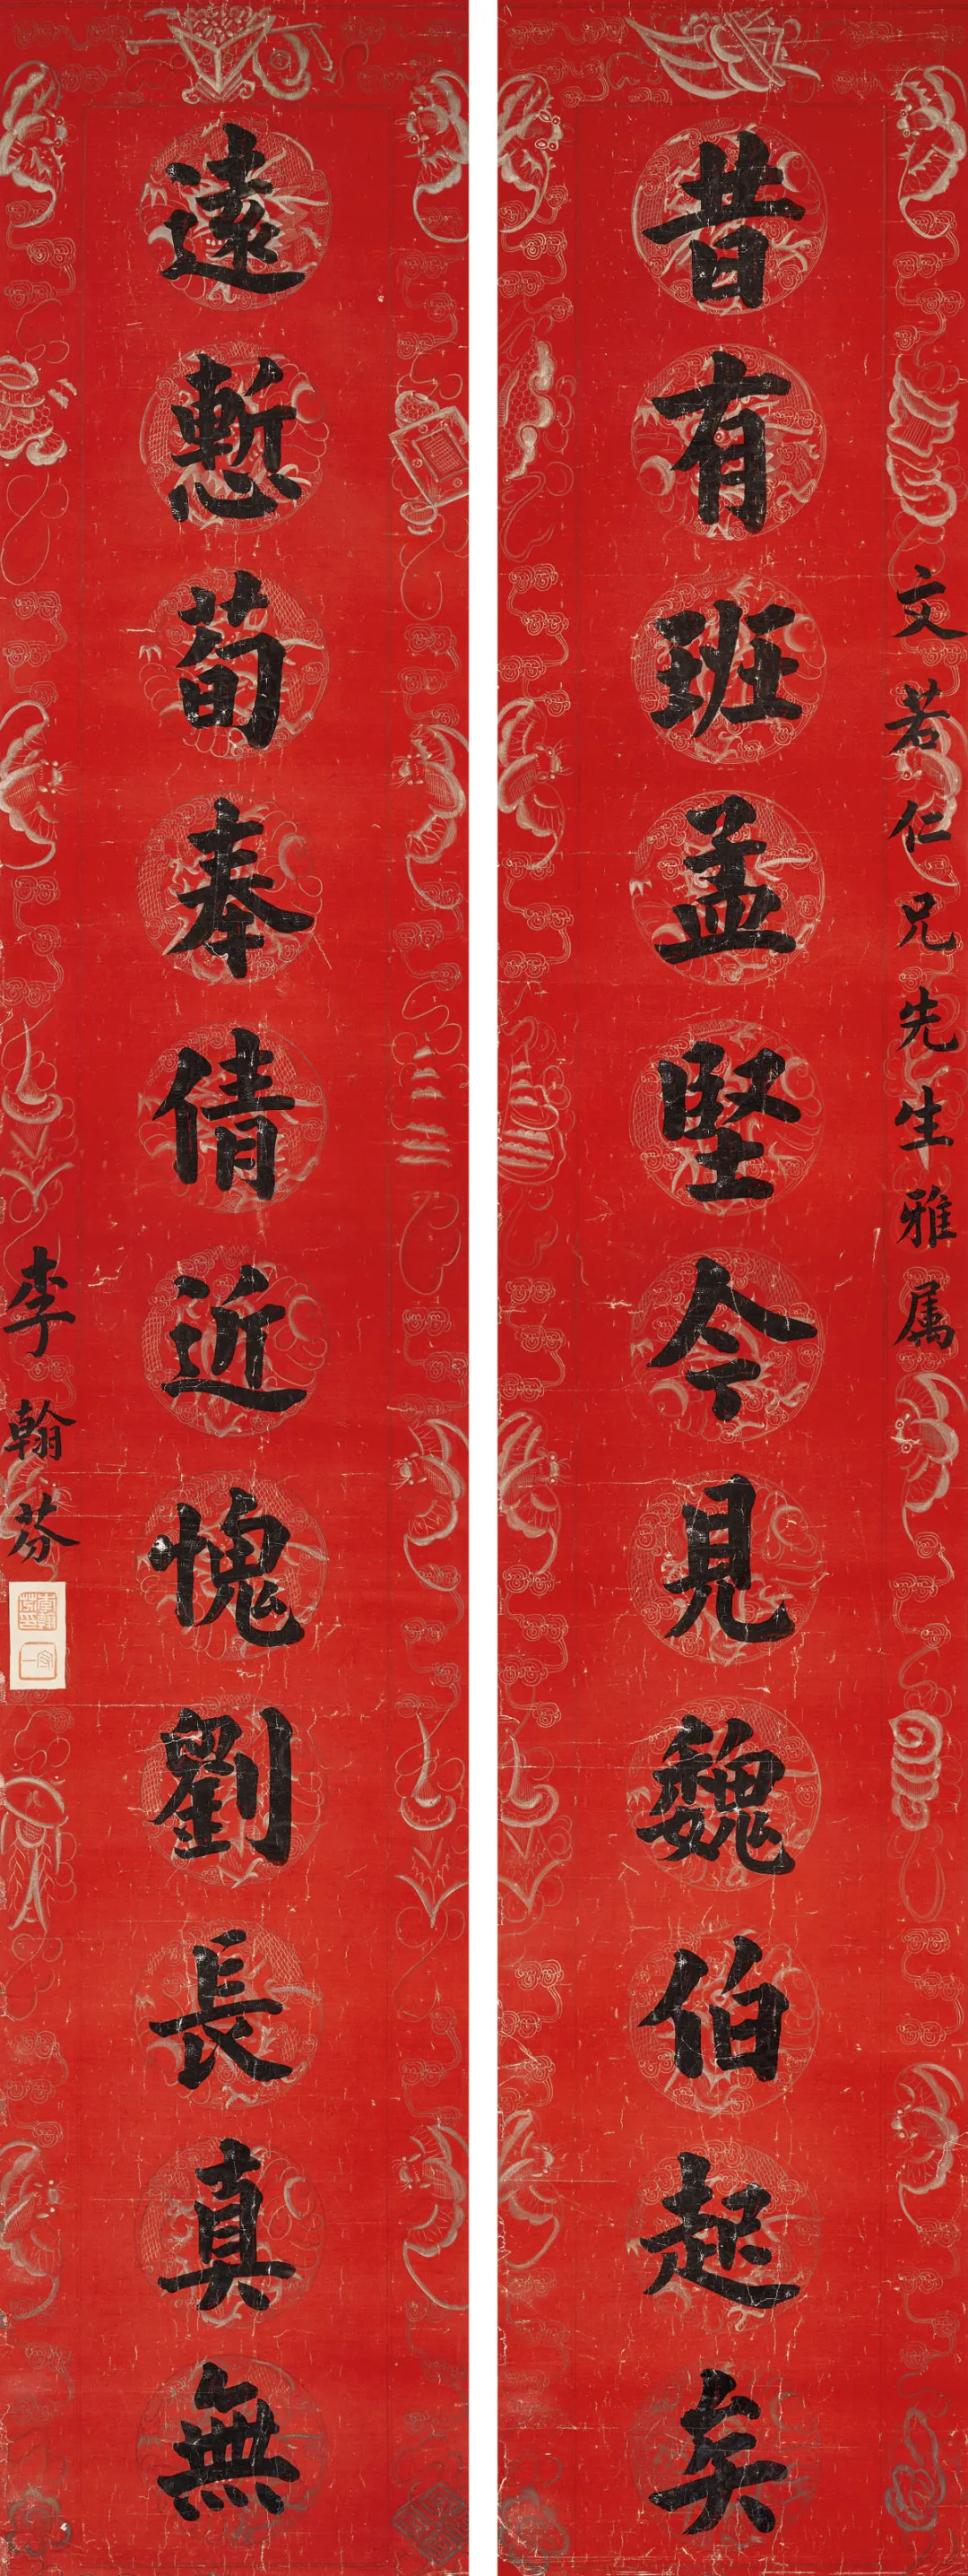 文若仁兄先生雅属
昔有班孟堅今見魏伯起矣
遠慙荀奉倩近愧劉長真無
李翰芬